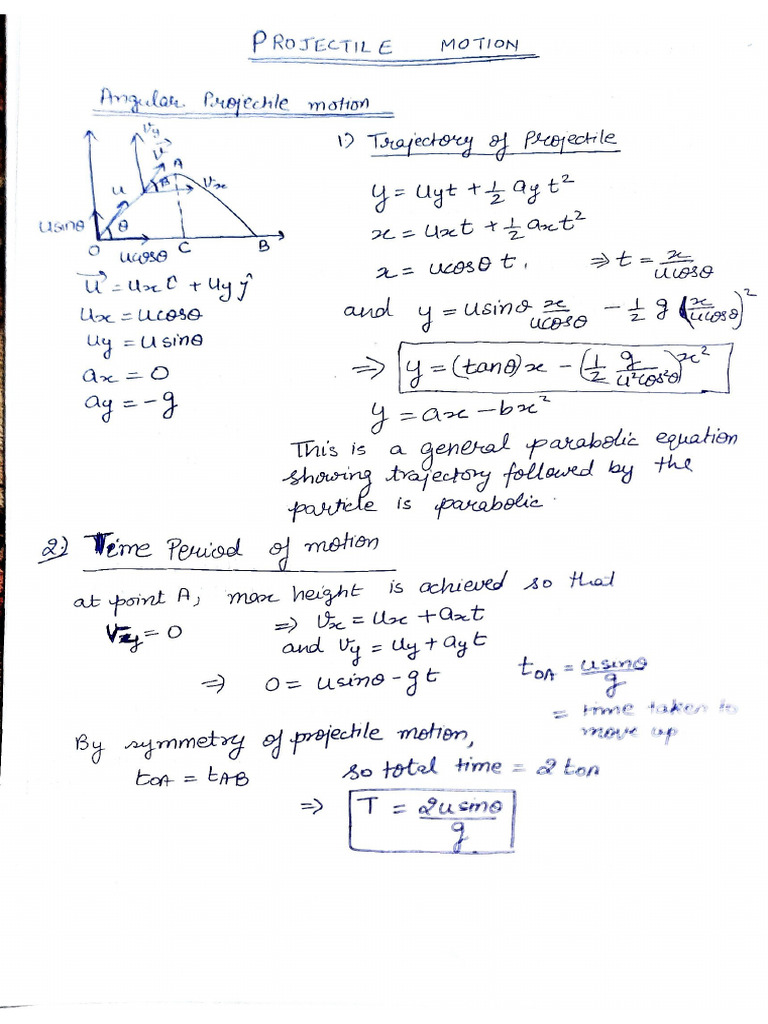 PROJECTILE MOTION
Angular Projectile motion
vy
v
A
β
vx
u
usinθ
θ
O
ucosθ
C
B
u⃗ = uxî + uyĵ
ux = ucosθ
uy = usinθ
ax = 0
ay = -g
1) Trajectory of Projectile
y = uyt + 1/2 ayt²
x = uxt + 1/2 axt²
x = ucosθ t, ⇒ t = x/ucosθ
and y = usinθ x/ucosθ - 1/2 g (x/ucosθ)²
⇒ y = (tanθ)x - (1/2 g/u²cos²θ)x²
y = ax - bx²
This is a general parabolic equation
showing trajectory followed by the
particle is parabolic.
2) Time Period of motion
at point A, max height is achieved so that
vy = 0 ⇒ vx = ux + axt
and vy = uy + ayt
⇒ 0 = usinθ - gt
tOA = usinθ/g
= time taken to
move up
By symmetry of projectile motion,
tOA = tAB so total time = 2 tOA
⇒ T = 2usinθ/g